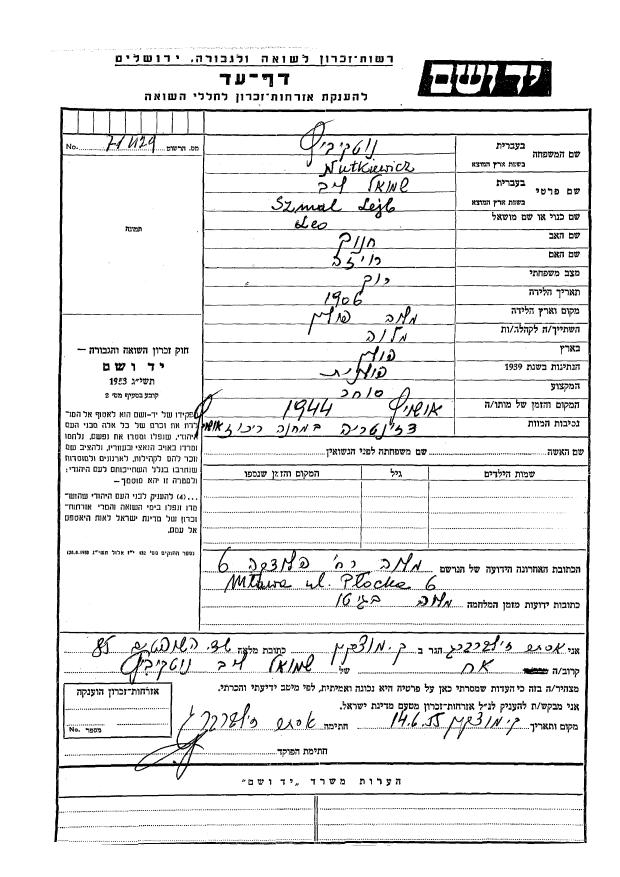 רשות-זכרון לשואה ולגבורה, ירושלים
יד ושם
דף-עד
להענקת אזרחות-זכרון לחללי השואה
No. 71429 מס. הרשום
תמונה
שם המשפחה בעברית נוטקיביץ
בשפת ארץ המוצא Nutkiewicz
שם פרטי בעברית שמואל ליב
בשפת ארץ המוצא Szmal Lejb
שם כנוי או שם מושאל Leo
שם האב חנוך
שם האם רויזה
מצב משפחתי רוק
תאריך הלידה 1906
מקום וארץ הלידה מלווה פולין
השתייך/ה לקהלה/ות מלווה
בארץ פולין
הנתינות בשנת 1939 פולנית
המקצוע סוחר
המקום והזמן של מותו/ה אושויץ 1944
נסיבות המוות דזינטריה במחנה ריכוז אושויץ
שם האשה: שם משפחתה לפני הנשואין
שמות הילדים: גיל המקום והזמן שנספו
הכתובת האחרונה הידועה של הנרשם מלווה רח' פלוצקה 6
Mława ul. Płocka 6
כתובות ידועות מזמן המלחמה מלווה בגיטו
חוק זכרון השואה והגבורה —
יד ושם
תשי"ג 1953
קובע בסעיף מס' 2
תפקידו של יד-ושם הוא לאסוף אל המו-
לדת את זכרם של כל אלה מבני העם
היהודי, שנפלו ומסרו את נפשם, נלחמו
ומרדו באויב הנאצי ובעוזריו, ולהציב שם
וזכר להם לקהילות, לארגונים ולמוסדות
שנחרבו בגלל השתייכותם לעם היהודי;
ולמטרה זו יהא מוסמך—
...(4) להעניק לבני העם היהודי שהוש-
מדו ונפלו בימי השואה והמרי אזרחות-
זכרון של מדינת ישראל לאות היאספם
אל עמם.
אני אסתר זילברברג הגר ב ק. מוצקין כתובת מלאה שד. השופטים 85
קרוב/ה אח של שמואל ליב נוטקיביץ
מצהיר/ה בזה כי העדות שמסרתי כאן על פרטיה היא נכונה ואמיתית, לפי מיטב ידיעתי והכרתי.
אני מבקש/ת להעניק לנ"ל אזרחות-זכרון מטעם מדינת ישראל.
מקום ותאריך ק. מוצקין 14.6.55 חתימה אסתר זילברברג
חתימת הפוקד
אזרחות-זכרון הוענקה
No. מספר
הערות משרד „יד ושם"